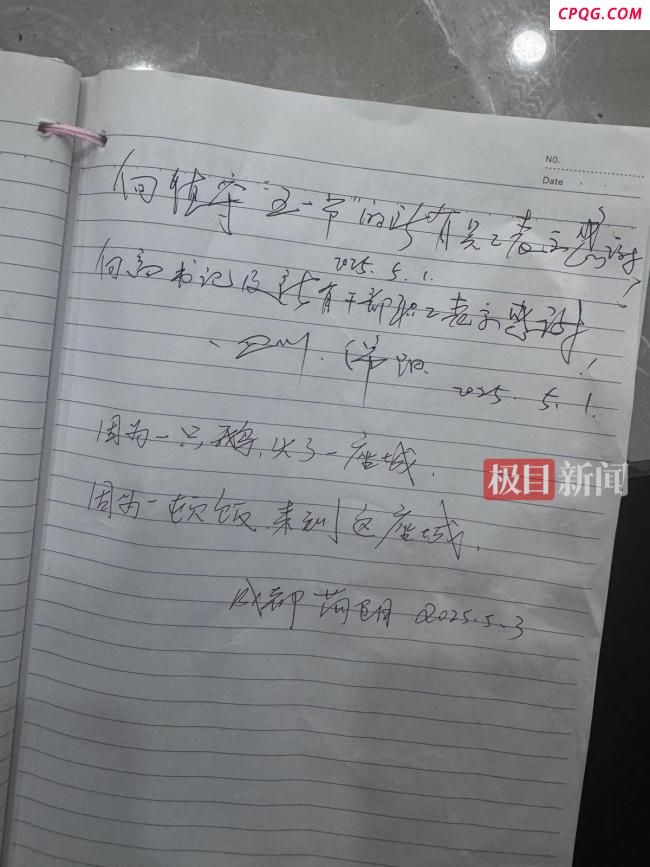 CPQG.COM
NO.
Date
向值守"五一节"的所有员工表示感谢!
2025.5.1.
向高书记及所有干部职工表示感谢!
、四川.泽阳. 2025.5.1.
因为一只鹅,火了一座城.
极目新闻
因为一顿饭,来到这座城.
成都 2025.5.3